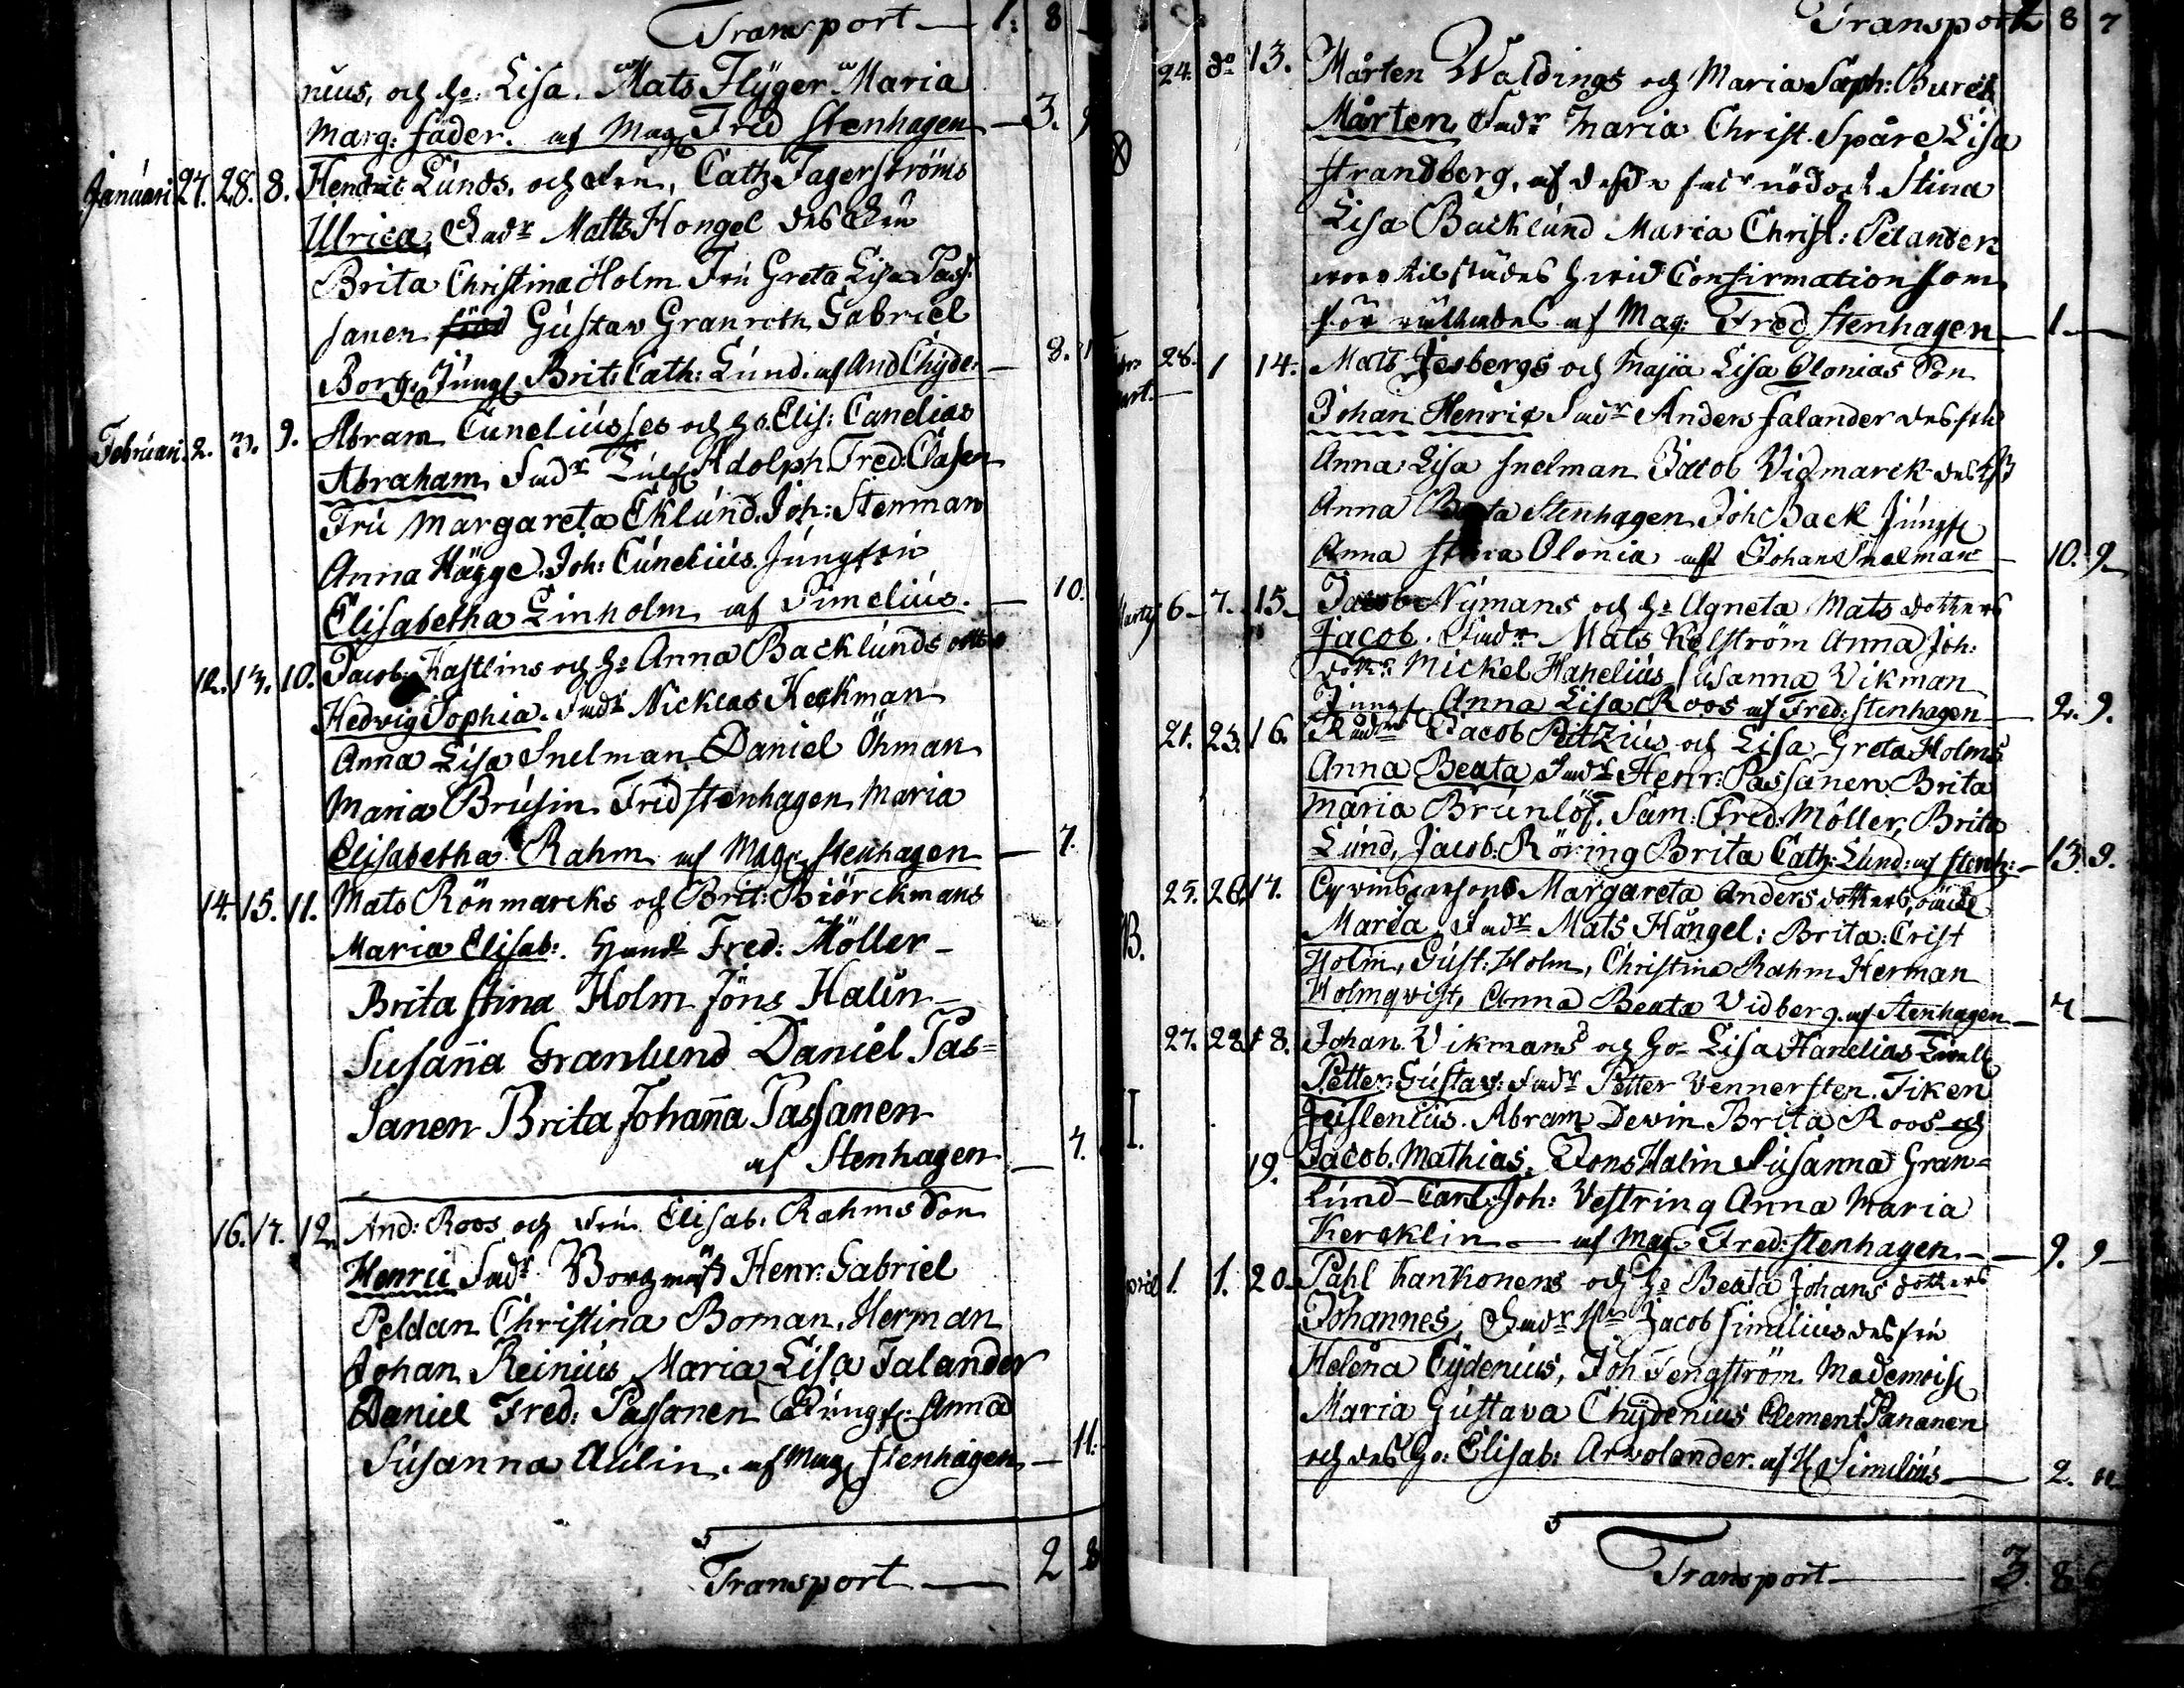 Transport — 1: 8
nius, och ho: Lisa. Mats Flyger Maria
Marg: fader. af Mag Fred Stenhagen — 3.
Januari 27. 28. 8. Henric Lunds, och fru, Cath Fagerströms
Ulrica, Fadr Matts Hongel des fru
Brita Christina Holm Fru Greta Lisa Pas
sanen Gustav Granroth Gabriel
Borg. Jungf Brit: Cath: Lund. af And Chyde: — 8.
Februari 2. 3. 9. Abram Cuneliusses och ho. Elis: Canelias
Abraham, Fadr Adolph Fred Clasen
Fru Margareta Eklund. Joh: Stenman
Anna Hägge. Joh: Cunelius. Jungfru
Elisabetha Linholm af Simelius. — 10.
12. 13. 10. Jacob Kastlins och ho Anna Backlunds
Hedvig Sophia. Fadr Nicklas Keckman
Anna Lisa Snelman Daniel Öhman
Maria Brusin Fred Stenhagen Maria
Elisabetha Rahm af Mag: Stenhagen — 7.
14. 15. 11. Mats Rönmarcks och Brit: Biörckmans
Maria Elisab: Fred: Möller —
Brita Stina Holm Jöns Halin —
Susanna Granlund Daniel Pas=
sanen Brita Johanna Passanen
af Stenhagen — 7.
16. 17. 12. And: Roos och fru Elisab. Rahms Son
Henric Fadr Borgmäst Henr: Gabriel
Peldan Christina Boman. Herman
Johan Reinius Maria Lisa Falander
Daniel Fred: Passanen Jungf: Anna
Susanna Aulin. af Mag Stenhagen — 11.
Transport — 2 8
Transport 1 8 7
24. do 13. Mårten Waldings och Maria Soph: Bureck
Mårten, Fadr Maria Christ. Spåre Lisa
Strandberg, af Stina
Lisa Backlund Maria Christ: Pelander
Confirmation som
af Mag: Fred Stenhagen — 1 —
28. 1 14. Mats Jesbergs och Maja Lisa Alonias Son
Johan Henric Fadr Anders Falander des fru
Anna Lisa Snelman Jacob Vidmarck des
Anna Stenhagen Joh Back Jungf
Anna Alonia af Johan Snelman — 10. 9
6 7. 15. Jacob Nymans och ho Agneta Mats dotters
Jacob. Fadr Mats Kelström Anna Joh:
Mickel Hanelius Susanna Vikman
Jungf Anna Lisa Roos af Fred: Stenhagen — 2. 9.
21. 23. 16. Jacob Pitzius och Lisa Greta Holms
Anna Beata Fadr Henr: Passanen Brita
Maria Brunlöf. Sam: Fred: Möller, Brita
Lund, Jacob: Röring Brita Cath: Lund: af Stenh: — 13. 9.
25. 26. 17. Margareta Anders dotters
Maria Fadr Mats Hångel: Brita: Crist
B. Holm, Gust: Holm, Christina Rahm Herman
Holmqvist, Anna Beata Vidberg. af Stenhagen — 7 —
27. 28. 18. Johan Vikmans och ho Lisa Hanelias
Petter Gustav: Fadr Petter Vennersten.
I. Abram Devin Brita Roos och
19. Jacob. Mathias, Jons Halin Susanna Gran=
lund — Carl: Joh: Vestring Anna Maria
Kercklin — af Mag: Fred: Stenhagen — 9. 9
1. 1. 20. Pahl Kankonens och ho Beata Johans dotters
Johannes, Fadr Jacob Simelius des fru
Helena Cydenius, Joh Tengström Mademoise
Maria Gustava Chydenius Clement Pananen
och des ho: Elisab: Arvolander. af H Simelius — 2.
Transport — 3. 8.